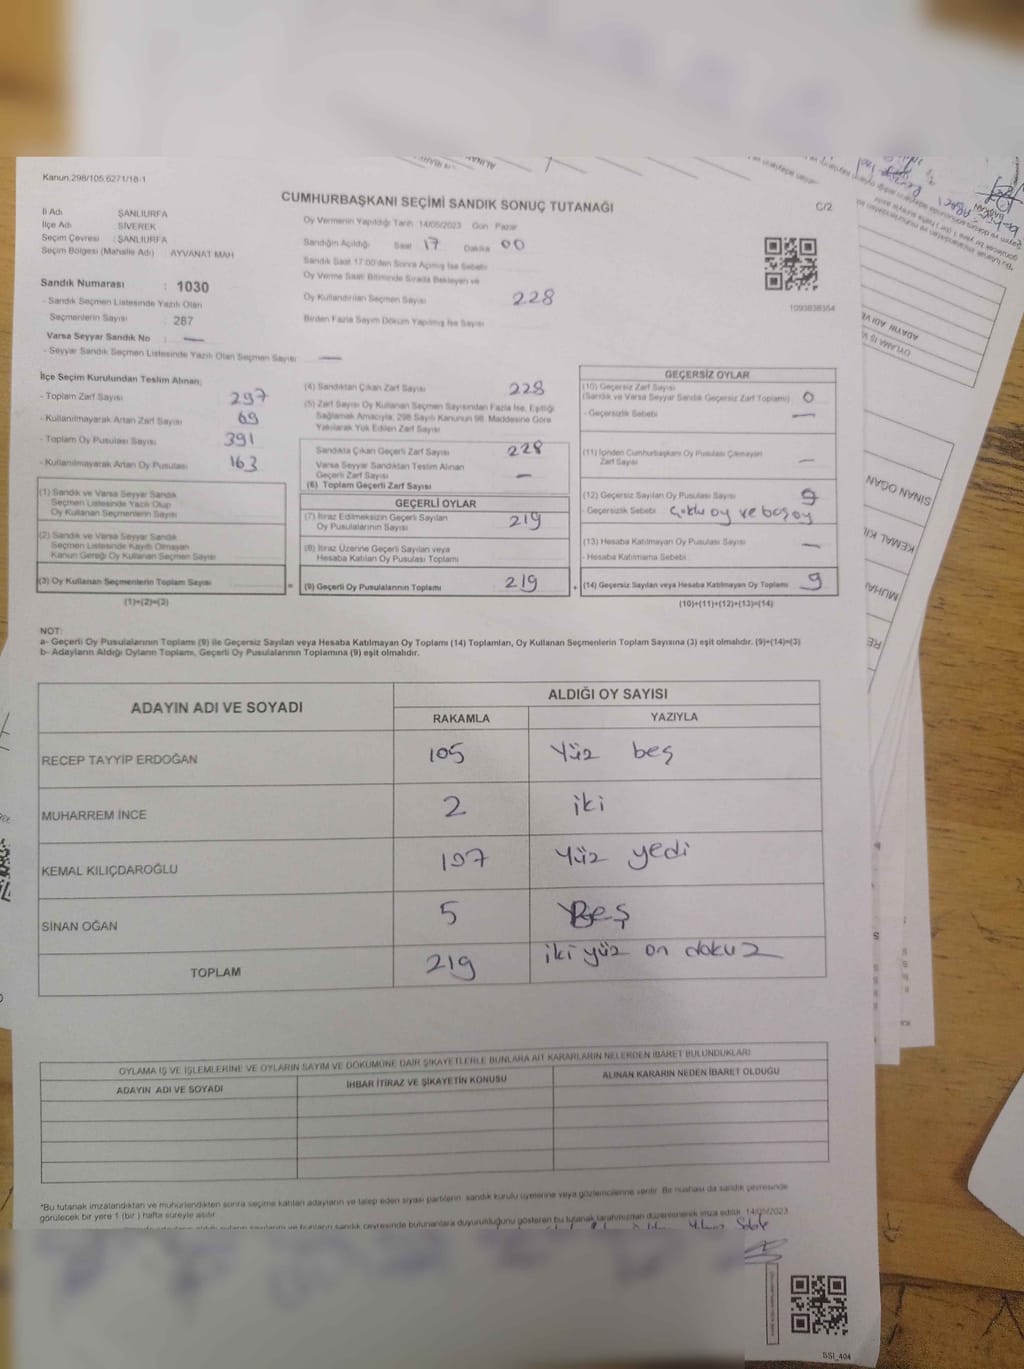 Kanun,298/105,6271/18-1
CUMHURBAŞKANI SEÇİMİ SANDIK SONUÇ TUTANAĞI
C/2
İl Adı : ŞANLIURFA
İlçe Adı : SİVEREK
Seçim Çevresi : ŞANLIURFA
Seçim Bölgesi (Mahalle Adı) AYVANAT MAH
Sandık Numarası : 1030
- Sandık Seçmen Listesinde Yazılı Olan
Seçmenlerin Sayısı : 287
Varsa Seyyar Sandık No : —
- Seyyar Sandık Seçmen Listesinde Yazılı Olan Seçmen Sayısı —
Oy Vermenin Yapıldığı Tarih : 14/05/2023 Gün : Pazar
Sandığın Açıldığı Saat 17 Dakika 00
Sandık Saat 17:00'den Sonra Açılmış İse Sebebi
Oy Verme Saati Bitiminde Sırada Bekleyen ve
Oy Kullandırılan Seçmen Sayısı 228
Birden Fazla Sayım Döküm Yapılmış İse Sayısı
1093838354
İlçe Seçim Kurulundan Teslim Alınan;
- Toplam Zarf Sayısı 297
- Kullanılmayarak Artan Zarf Sayısı 69
- Toplam Oy Pusulası Sayısı 391
- Kullanılmayarak Artan Oy Pusulası 163
(1) Sandık ve Varsa Seyyar Sandık
Seçmen Listesinde Yazılı Olup
Oy Kullanan Seçmenlerin Sayısı
(2) Sandık ve Varsa Seyyar Sandık
Seçmen Listesinde Kayıtlı Olmayan
Kanun Gereği Oy Kullanan Seçmen Sayısı
(3) Oy Kullanan Seçmenlerin Toplam Sayısı =
(1)+(2)=(3)
(4) Sandıktan Çıkan Zarf Sayısı 228
(5) Zarf Sayısı Oy Kullanan Seçmen Sayısından Fazla İse, Eşitliği
Sağlamak Amacıyla, 298 Sayılı Kanunun 98. Maddesine Göre
Yakılarak Yok Edilen Zarf Sayısı
Sandıkta Çıkan Geçerli Zarf Sayısı 228
Varsa Seyyar Sandıktan Teslim Alınan
Geçerli Zarf Sayısı —
(6) Toplam Geçerli Zarf Sayısı
GEÇERLİ OYLAR
(7) İtiraz Edilmeksizin Geçerli Sayılan
Oy Pusulalarının Sayısı 219
(8) İtiraz Üzerine Geçerli Sayılan veya
Hesaba Katılan Oy Pusulası Toplamı
(9) Geçerli Oy Pusulalarının Toplamı 219 +
GEÇERSİZ OYLAR
(10) Geçersiz Zarf Sayısı
(Sandık ve Varsa Seyyar Sandık Geçersiz Zarf Toplamı) 0
- Geçersizlik Sebebi —
(11) İçinden Cumhurbaşkanı Oy Pusulası Çıkmayan
Zarf Sayısı —
(12) Geçersiz Sayılan Oy Pusulası Sayısı 9
- Geçersizlik Sebebi çoklu oy ve boş oy
(13) Hesaba Katılmayan Oy Pusulası Sayısı —
- Hesaba Katılmama Sebebi
(14) Geçersiz Sayılan veya Hesaba Katılmayan Oy Toplamı 9
(10)+(11)+(12)+(13)=(14)
NOT:
a- Geçerli Oy Pusulalarının Toplamı (9) ile Geçersiz Sayılan veya Hesaba Katılmayan Oy Toplamı (14) Toplamları, Oy Kullanan Seçmenlerin Toplam Sayısına (3) eşit olmalıdır. (9)+(14)=(3)
b- Adayların Aldığı Oyların Toplamı, Geçerli Oy Pusulalarının Toplamına (9) eşit olmalıdır.
ADAYIN ADI VE SOYADI
ALDIĞI OY SAYISI
RAKAMLA YAZIYLA
RECEP TAYYİP ERDOĞAN 105 Yüz beş
MUHARREM İNCE 2 iki
KEMAL KILIÇDAROĞLU 107 Yüz yedi
SİNAN OĞAN 5 Beş
TOPLAM 219 iki yüz on dokuz
OYLAMA İŞ VE İŞLEMLERİNE VE OYLARIN SAYIM VE DÖKÜMÜNE DAİR ŞİKAYETLERLE BUNLARA AİT KARARLARIN NELERDEN İBARET BULUNDUKLARI
ADAYIN ADI VE SOYADI İHBAR İTİRAZ VE ŞİKAYETİN KONUSU ALINAN KARARIN NEDEN İBARET OLDUĞU
*Bu tutanak imzalandıktan ve mühürlendikten sonra seçime katılan adayların ve talep eden siyasi partilerin sandık kurulu üyelerine veya gözlemcilerine verilir. Bir nüshası da sandık çevresinde
görülecek bir yere 1 (bir) hafta süreyle asılır.
sandık çevresinde bulunanlara duyurulduğunu gösteren bu tutanak tarafımızdan düzenlenerek imza edildi. 14/05/2023
SSI_404
BAŞKAN
ADAYIN ADI VE
OYLAMA İŞ V
SİNAN OĞAN
KEMAL KILI
MUHAR
RE